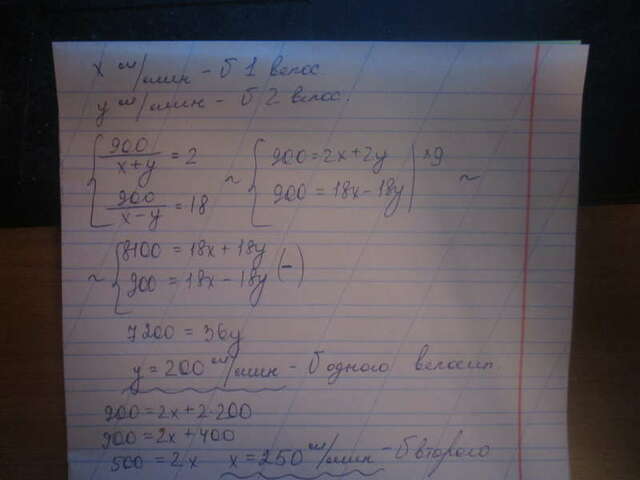 x м/мин – б 1 велос.
y м/мин – б 2 велос.
{ 900/(x+y) = 2 ~ { 900 = 2x + 2y | ×9
900/(x–y) = 18 900 = 18x – 18y | ~
~ { 8100 = 18x + 18y
900 = 18x – 18y (–)
7200 = 36y
y = 200 м/мин – б одного велосип.
900 = 2x + 2·200
900 = 2x + 400
500 = 2x x = 250 м/мин – б второго